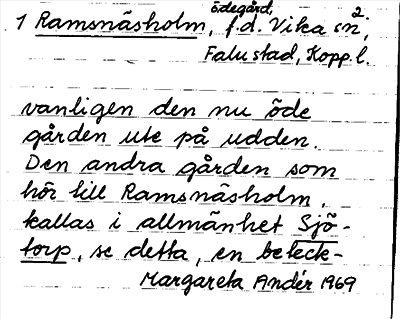 ödegård,
1 Ramsnäsholm, f.d. Vika sn 2,
Falu stad, Kopp. l.
vanligen den nu öde
gården ute på udden.
Den andra gården som
hör till Ramsnäsholm,
kallas i allmänhet Sjö-
torp, se detta, en beteck-
Margareta Andér 1969